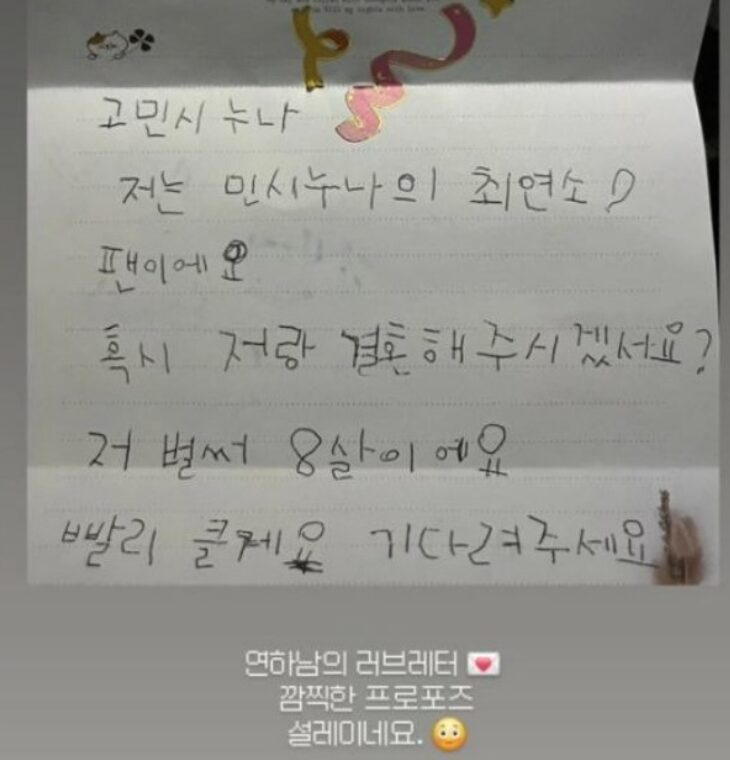 fill my nights with love.
고민시 누나
저는 민시누나의 최연소
팬이에요
혹시 저랑 결혼해주시겠서요?
저 벌써 8살이에요
빨리 클께요 기다려주세요
연하남의 러브레터 💌
깜찍한 프로포즈
설레이네요. 😳